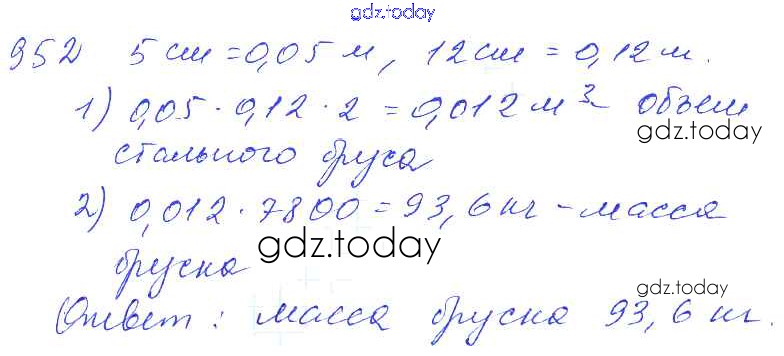 gdz.today
952 5 см = 0,05 м, 12 см = 0,12 м.
1) 0,05 · 0,12 · 2 = 0,012 м³ - объем
gdz.today
стального бруса
2) 0,012 · 7800 = 93,6 кг - масса
gdz.today
бруска
gdz.today
Ответ: масса бруска 93,6 кг.